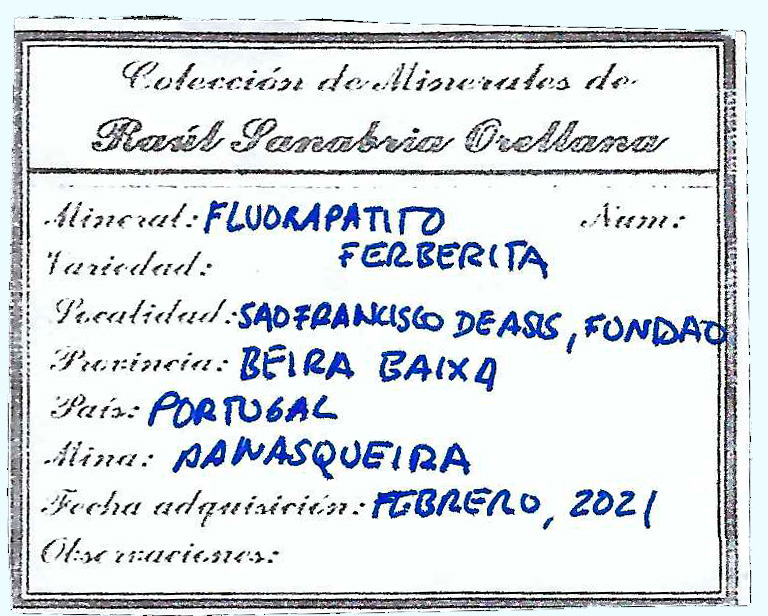 Colección de Minerales de
Raúl Sanabria Orellana
Mineral: FLUORAPATITO Num:
FERBERITA
Variedad:
Localidad: SAO FRANCISCO DE ASIS, FUNDAO
Provincia: BEIRA BAIXA
País: PORTUGAL
Mina: PANASQUEIRA
Fecha adquisición: FEBRERO, 2021
Observaciones: